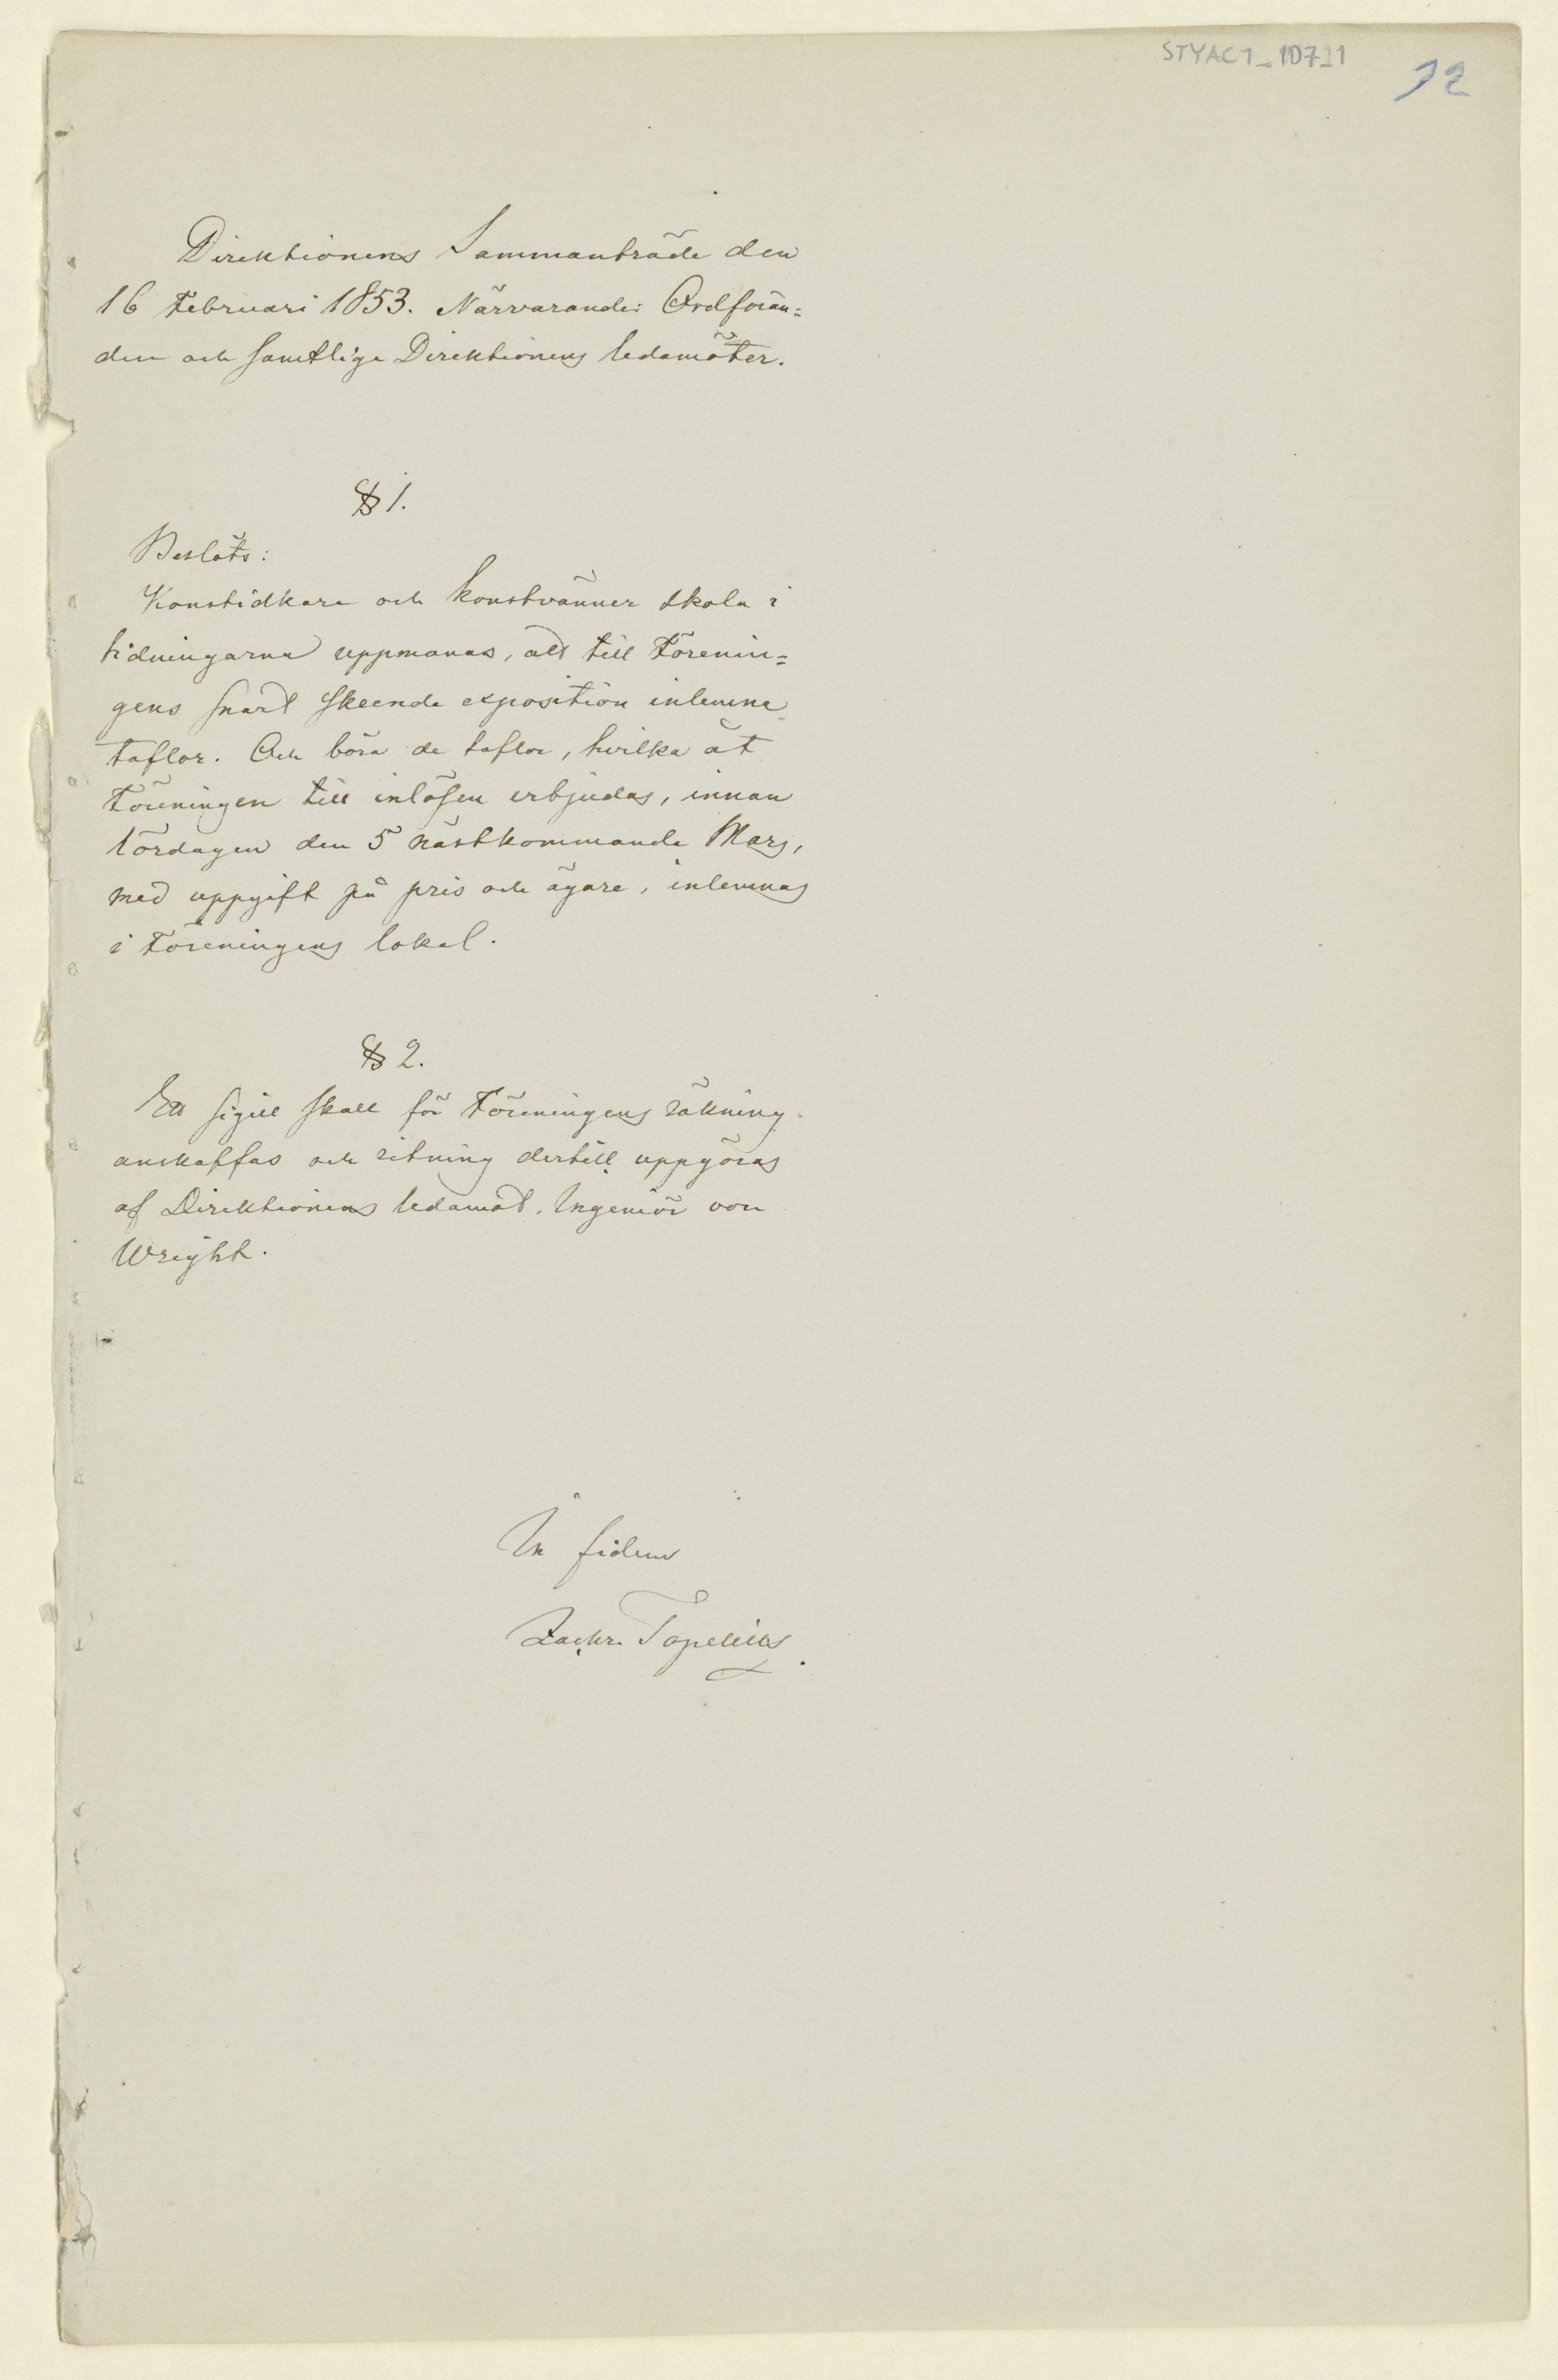 STYAC1_1071
32
Direktionens Sammanträde den
16 Februari 1853. Närvarande: Ordföran=
den och samtlige Direktionens ledamöter.
§ 1.
Beslöts:
Konstidkare och konstvänner skola i
tidningarna uppmanas, att till Förenin=
gens snart skeende exposition inlemna
taflor. Och böra de taflor, hvilka åt
Föreningen till inlösen erbjudas, innan
lördagen den 5 nästkommande Mars,
med uppgift på pris och ägare, inlemnas
i Föreningens lokal.
§ 2.
Ett sigill skall för Föreningens räkning
anskaffas och ritning dertill uppgöras
af Direktionens ledamot, Ingeniör von
Wright.
In fidem
Zachr. Topelius.